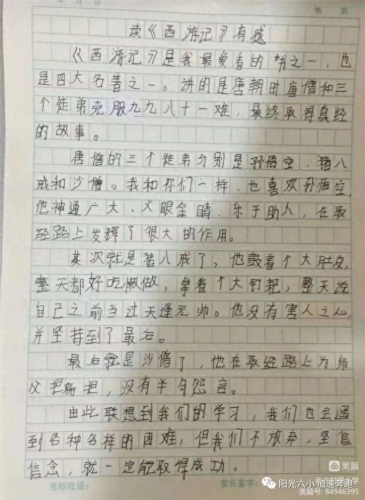 读《西游记》有感
《西游记》是我最爱看的书之一,也
是四大名著之一。讲的是唐朝时唐僧和三
个徒弟克服九九八十一难,最终取得真经
的故事。
唐僧的三个徒弟分别是孙悟空、猪八
戒和沙僧。我和你们一样,也喜欢孙悟空
他神通广大、火眼金睛、乐于助人,在取
经路上发挥了很大的作用。
其次就是猪八戒了,他鼓着个大肚皮
整天都好吃懒做,拿着个大钉耙,整天说
自己之前当过天逢元帅。他没有害人之心
并坚持到了最后。
最后就是沙僧了,他在取经路上为师
父把担,没有半句怨言。
由此联想到我们的学习,我们也会遇
到各种各样的困难,但我们不放弃,坚定
信念,就一定能取得成功。
家长签字:
美篇
阳光六小
美篇号: 84946395